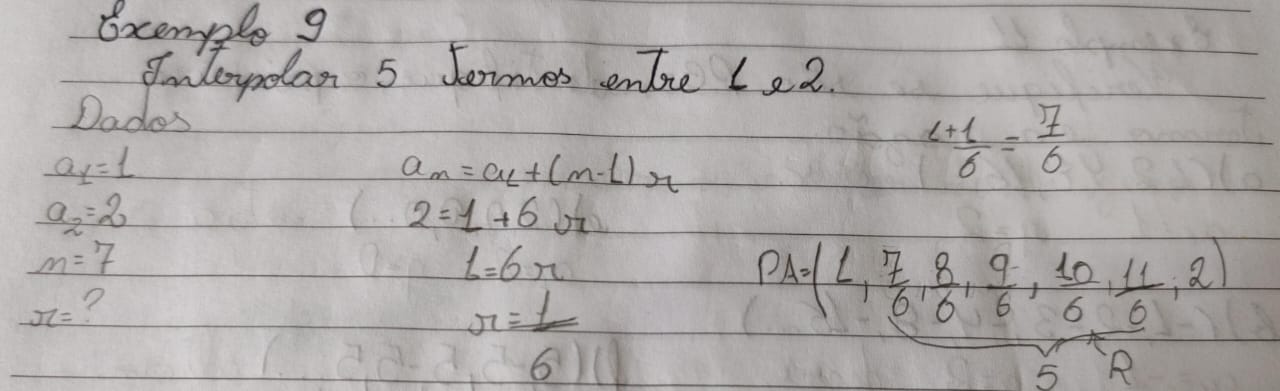 Exemplo 9
Interpolar 5 Termos entre 1 e 2.
Dados
a1=1
a2=2
n=7
r=?
an=a1+(n-1)r
2=1+6r
1=6r
r=1/6
1+1/6=7/6
PA=(1, 7/6, 8/6, 9/6, 10/6, 11/6, 2)
5 R